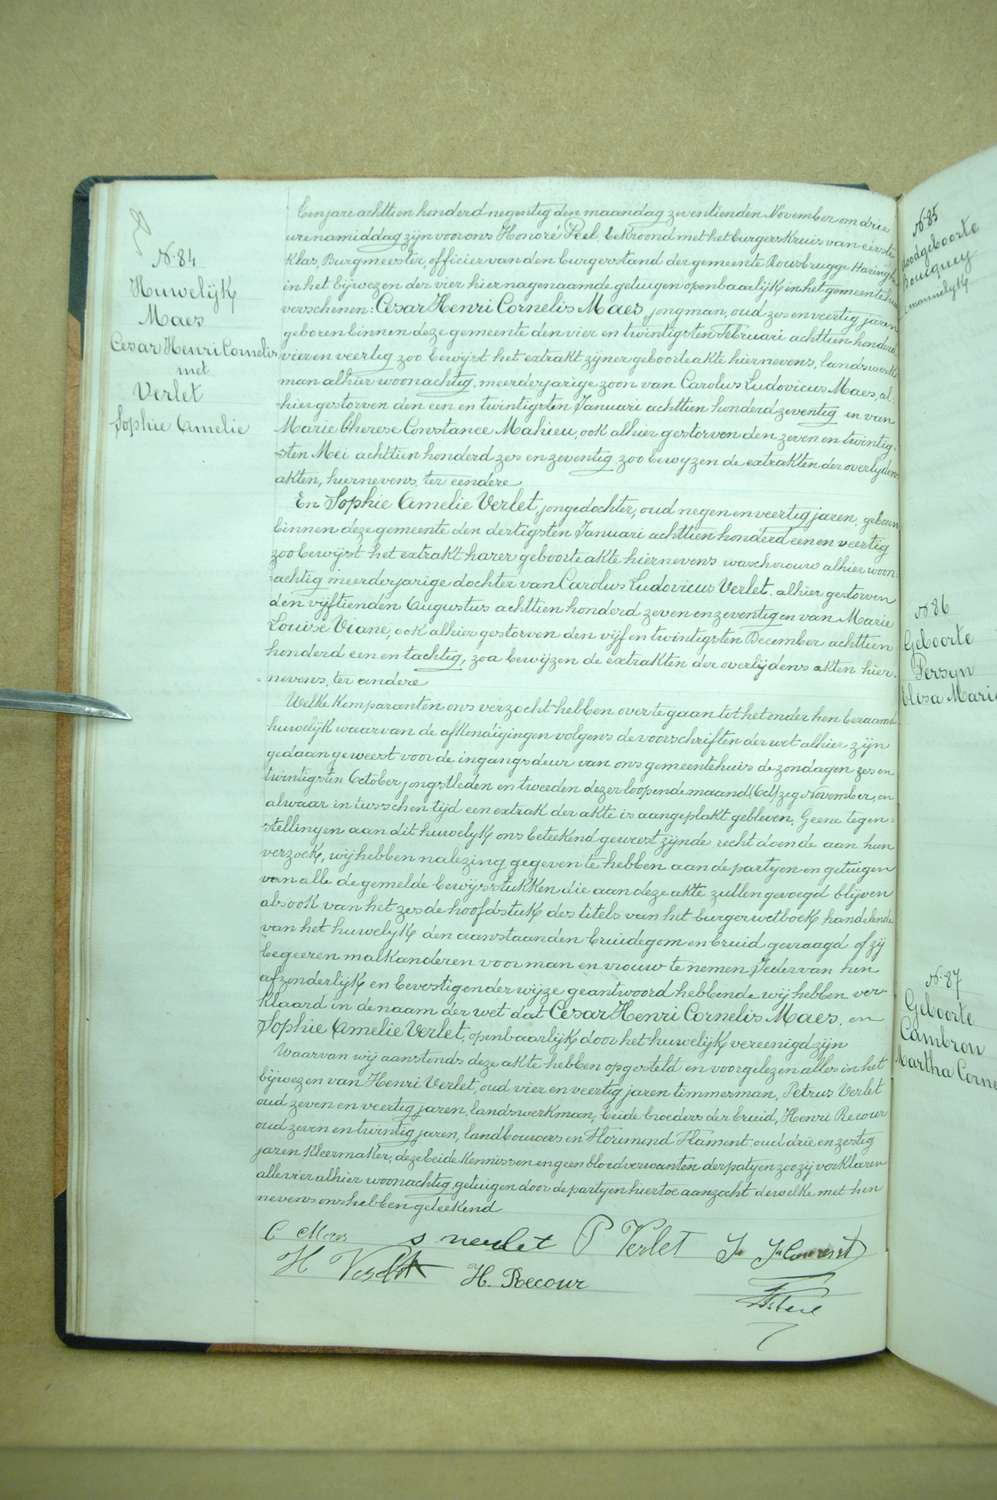 N. 84
Huwelijk
Maes
Cesar Henri Cornelis
met
Verlet
Sophie Amelie
Eenjare achttien honderd negentig den maandag zeventienden November om drie
ure namiddag zijn voor ons Honoré Peel, bekroond met het burgerskruis van eerste
klas, Burgmeester, officier van den burgerstand der gemeente Rousbrugge Haringhe
in het bijwezen der vier hiernagenaamde getuigen openbaarlijk in het gemeentehuis
verschenen: Cesar Henri Cornelis Maes, jongman, oud zes en veertig jaren
geboren binnen deze gemeente den vier en twintigsten Februari achttien honderd
vier en veertig zoo bewijst het extrakt zijner geboorteakte hiernevens, landswerk-
man alhier woonachtig, meerderjarige zoon van Carolus Ludovicus Maes, al-
hier gestorven den een en twintigsten Januari achttien honderd zeventig en van
Marie Therese Constance Mahieu, ook alhier gestorven den zeven en twintig-
sten Mei achttien honderd zes en zeventig zoo bewyzen de extrakten der overlydens
akten, hiernevens, ter eendere
En Sophie Amelie Verlet, jongedochter, oud negen en veertig jaren, geboren
binnen deze gemeente den dertigsten Januari achttien honderd een en veertig
zoo bewijst het extrakt harer geboorteakte hiernevens waschvrouw alhier woon-
achtig meerderjarige dochter van Carolus Ludovicus Verlet, alhier gestorven
den vijftienden Augustus achttien honderd zeven en zeventig en van Marie
Louise Viane, ook alhier gestorven den vijf en twintigsten December achttien
honderd een en tachtig, zoo bewijzen de extrakten der overlijdens akten hier-
nevens, ter andere
Welke komparanten ons verzocht hebben over te gaan tot het onder hen beraamde
huwelijk waarvan de afkondigingen volgens de voorschriften der wet alhier zijn
gedaan geweest voor de ingangsdeur van ons gemeentehuis de zondagen zes en
twintigsten October jongstleden en tweeden dezer loopende maand (Oct) zeg November, en
alwaar intusschen tijd een extrak der akte is aangeplakt gebleven. Geene tegen-
stellingen aan dit huwelyk ons beteekend geweest zijnde recht doende aan hun
verzoek, wij hebben nalezing gegeven te hebben aan de partyen en getuigen
van alle de gemelde bewijsstukken die aan deze akte zullen gevoegd blijven
alsook van het zesde hoofdstuk des titels van het burgerwetboek handelende
van het huwelyk den aanstaanden bruidegom en bruid gevraagd of zij
begeeren malkanderen voor man en vrouw te nemen Ieder van hen
afzonderlijk en bevestigender wijze geantwoord hebbende wij hebben ver-
klaard in de naam der wet dat Cesar Henri Cornelis Maes, en
Sophie Amelie Verlet, openbaarlijk door het huwelijk vereenigd zijn
Waarvan wij aanstonds deze akte hebben opgesteld en voorgelezen alles in het
bijwezen van Henri Verlet, oud vier en veertig jaren timmerman, Petrus Verlet
oud zeven en veertig jaren, landswerkman, beide broeders der bruid, Henri Recour
oud zeven en twintig jaren, landbouwer en Florimond Flament, oud drie en zestig
jaren kleermaker, deze beide kennissen en geen bloedverwanten der partyen zoo zij verklaren
alle vier alhier woonachtig, getuigen door de partyen hiertoe aanzocht dewelke met hun
nevens ons hebben geteekend
C Maes
S verlet
P Verlet
H Verlet
H. Recour
N. 85
Doodgeboorte
mannelyk
N. 86
Geboorte
Persyn
Elisa Marie
N. 87
Geboorte
Cambron
Martha Corne